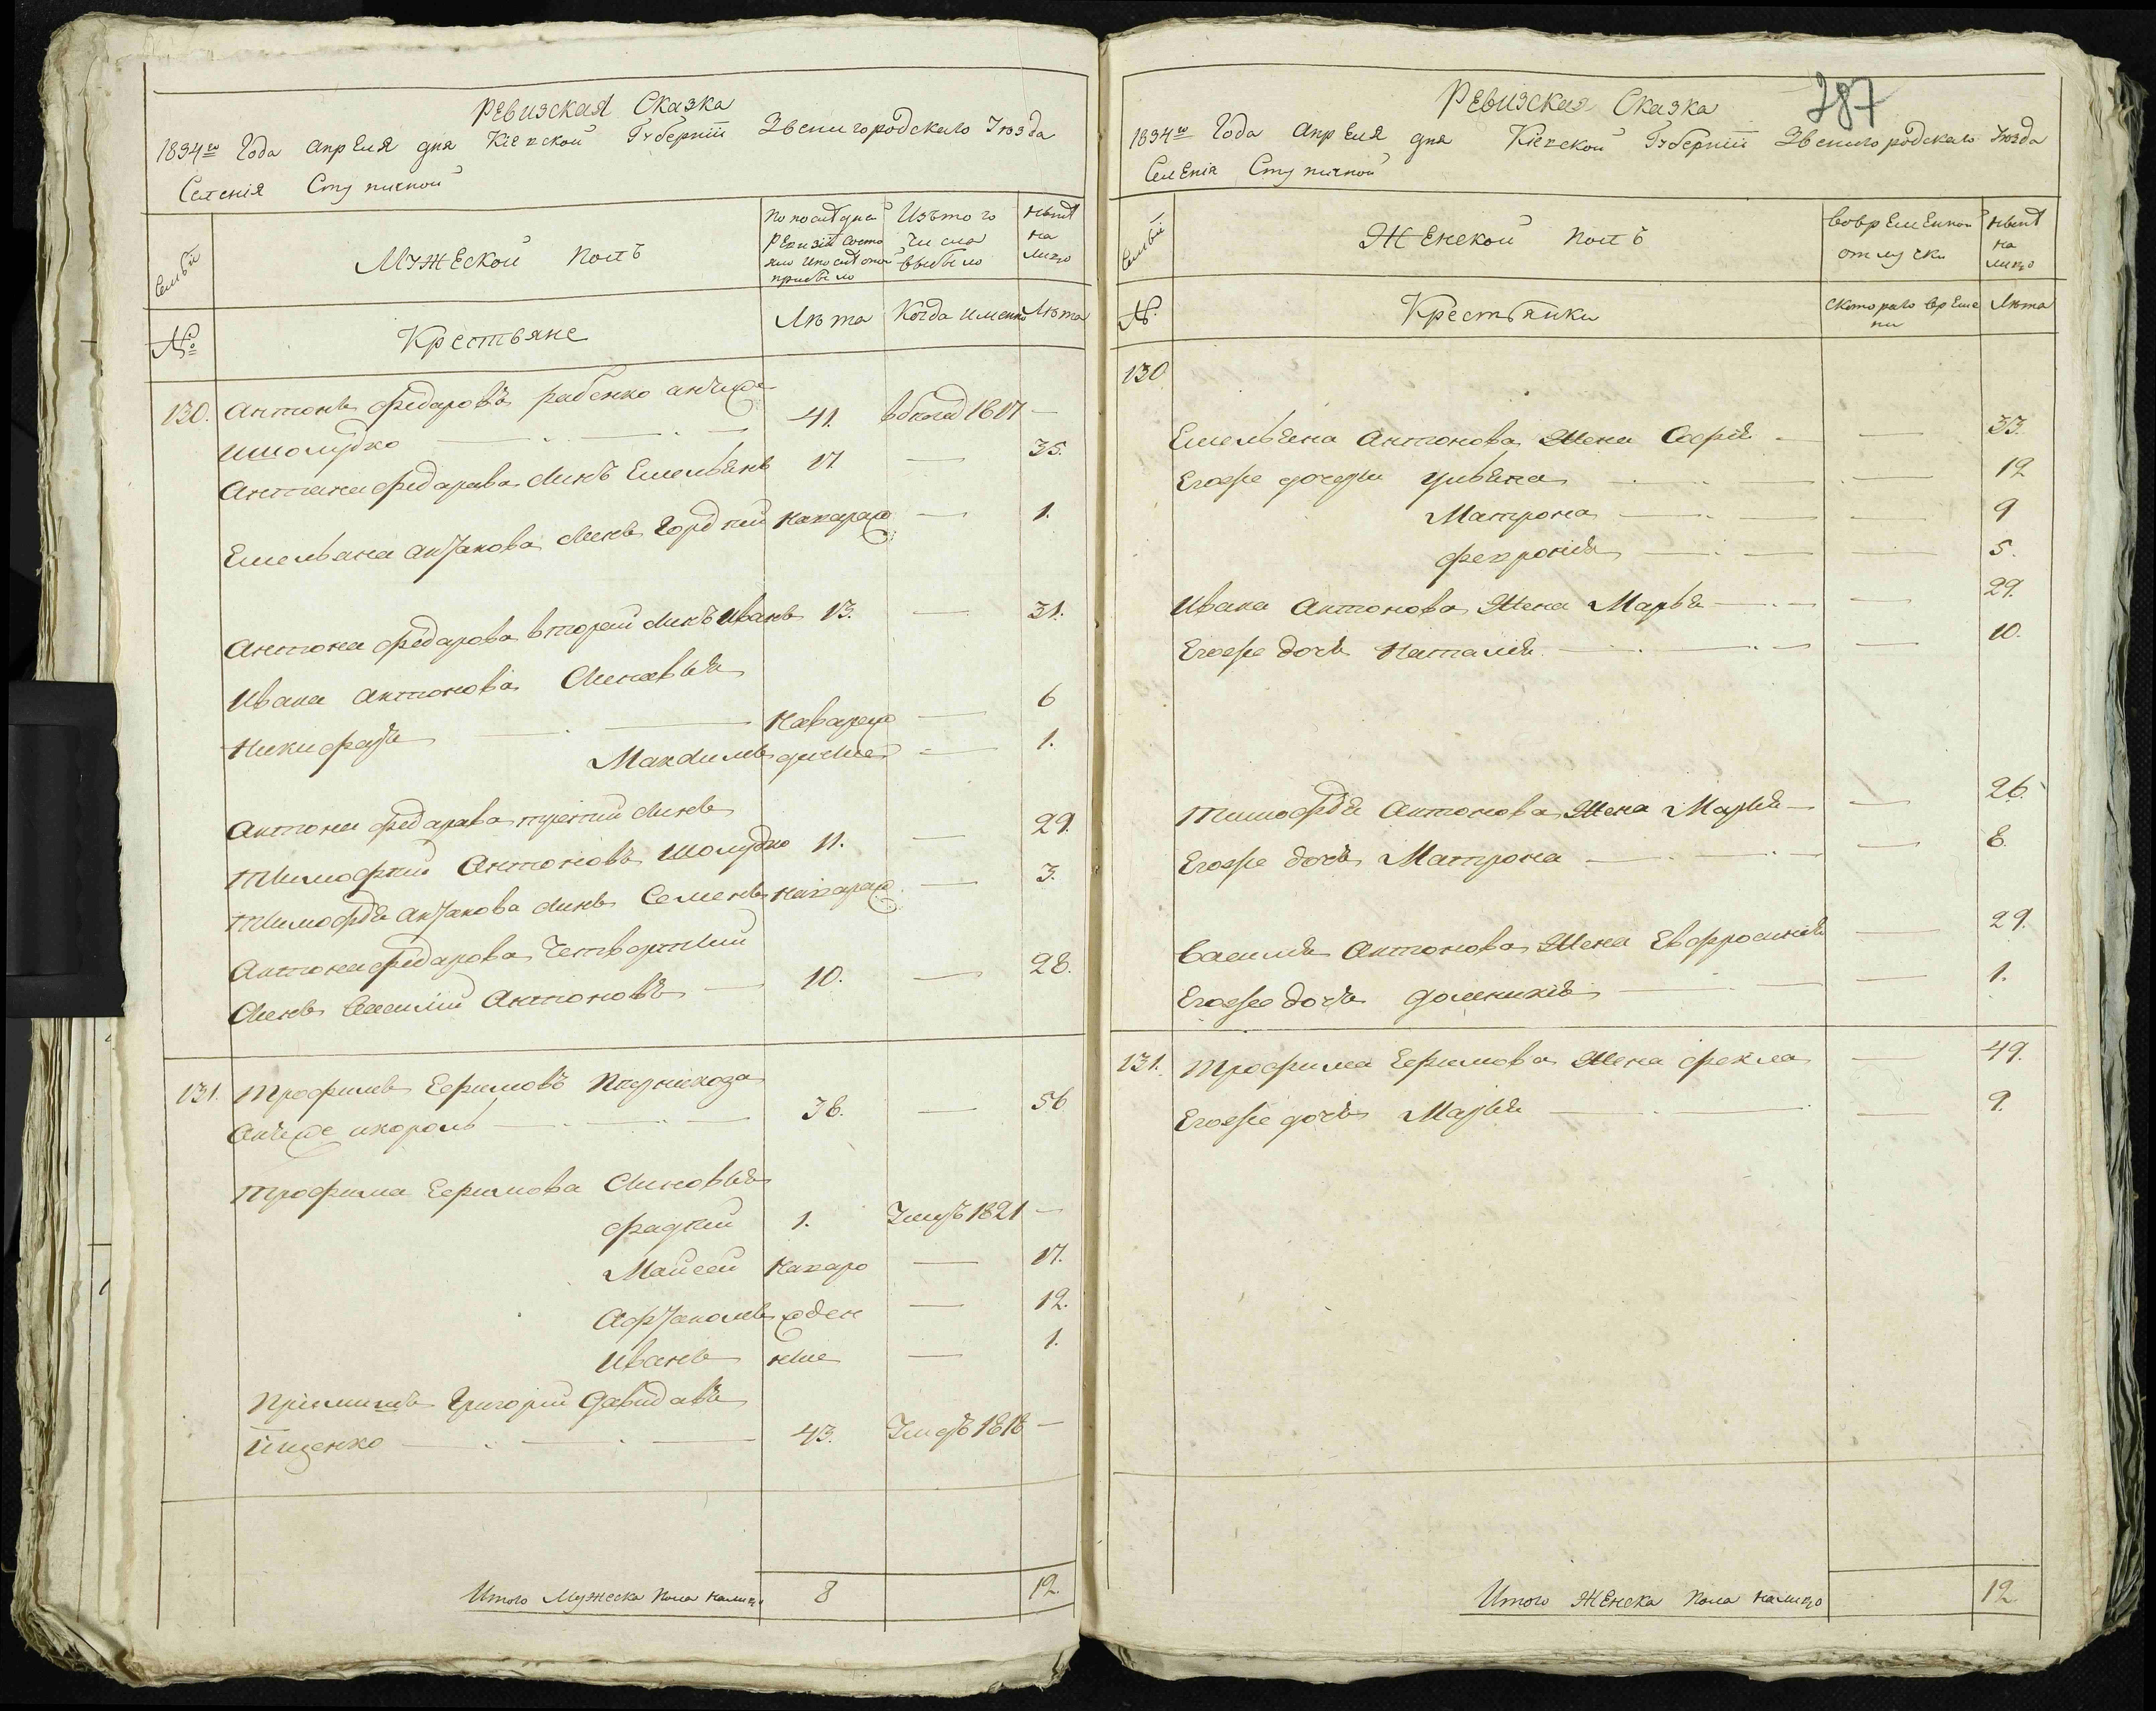 Ревизская Сказка
1834го Года апреля дня Кіевской Губерніи Звенигородскаго Уезда
Селенія Ступичной
Семьи
Мужеской полъ
По последней ревизіи состояло и после оной прибыло
Изъ того числа выбыло
Ныне на лицо
№
Крестьяне
Лета
Когда именно
Лета
130. Антонъ Федаровъ рабенко аньще
ишолудко 41. вбегах 1817 —
Антона Федарава синъ Емельянъ 17 — 35.
Емельяна антанова синъ Гордей — 1.
Антона Федарова вторей синъ Иванъ 13. — 31.
Ивана антонова Синовья
Никифаръ — 6
Максимъ — 1.
Антона Федарава третий синъ
Тимофей Антоновъ Шолудко 11. — 29.
Тимофея антанова синъ Семенъ — 3.
Антона Федарова Четвертий
Синъ Василий Антоновъ — 10. — 28.
131. Трофимъ Ефимовъ
король — 38. — 56
Трофима Ефимова Синовья
Фадей 1. Умеръ 1821 —
Майсей — 17.
Афтаномъ — 12.
Иванъ — 1.
Приимитъ Григорий Давидавъ
Ищенко — 43. Умеръ 1818 —
Итого Мужеска пола налицо 8 12.
287
Ревизская Сказка
1834го Года апреля дня Кіевской Губерніи Звенигородскаго Уезда
Селенія Ступичной
Семьи
Женской полъ
Вовременной отлучки
Ныне на лицо
№
Крестьянки
Скотораго времени
Лета
130
Емельяна Антонова Жена Софія — 33.
Егоже дочери Ульяна — 12
Матрона — 9
Февронія — 5.
Ивана Антонова Жена Марья — 29.
Егоже дочь Наталія — 10.
Тимофея Антонова Жена Марья — 26.
Егоже дочь Матрона — 8.
Василия Антонова Жена Евфросинія — 29.
Егоже дочь Доменикія — 1.
131. Трофима Ефимова Жена Фекла — 49.
Егоже дочь Марья — 9.
Итого Женска пола налицо 12